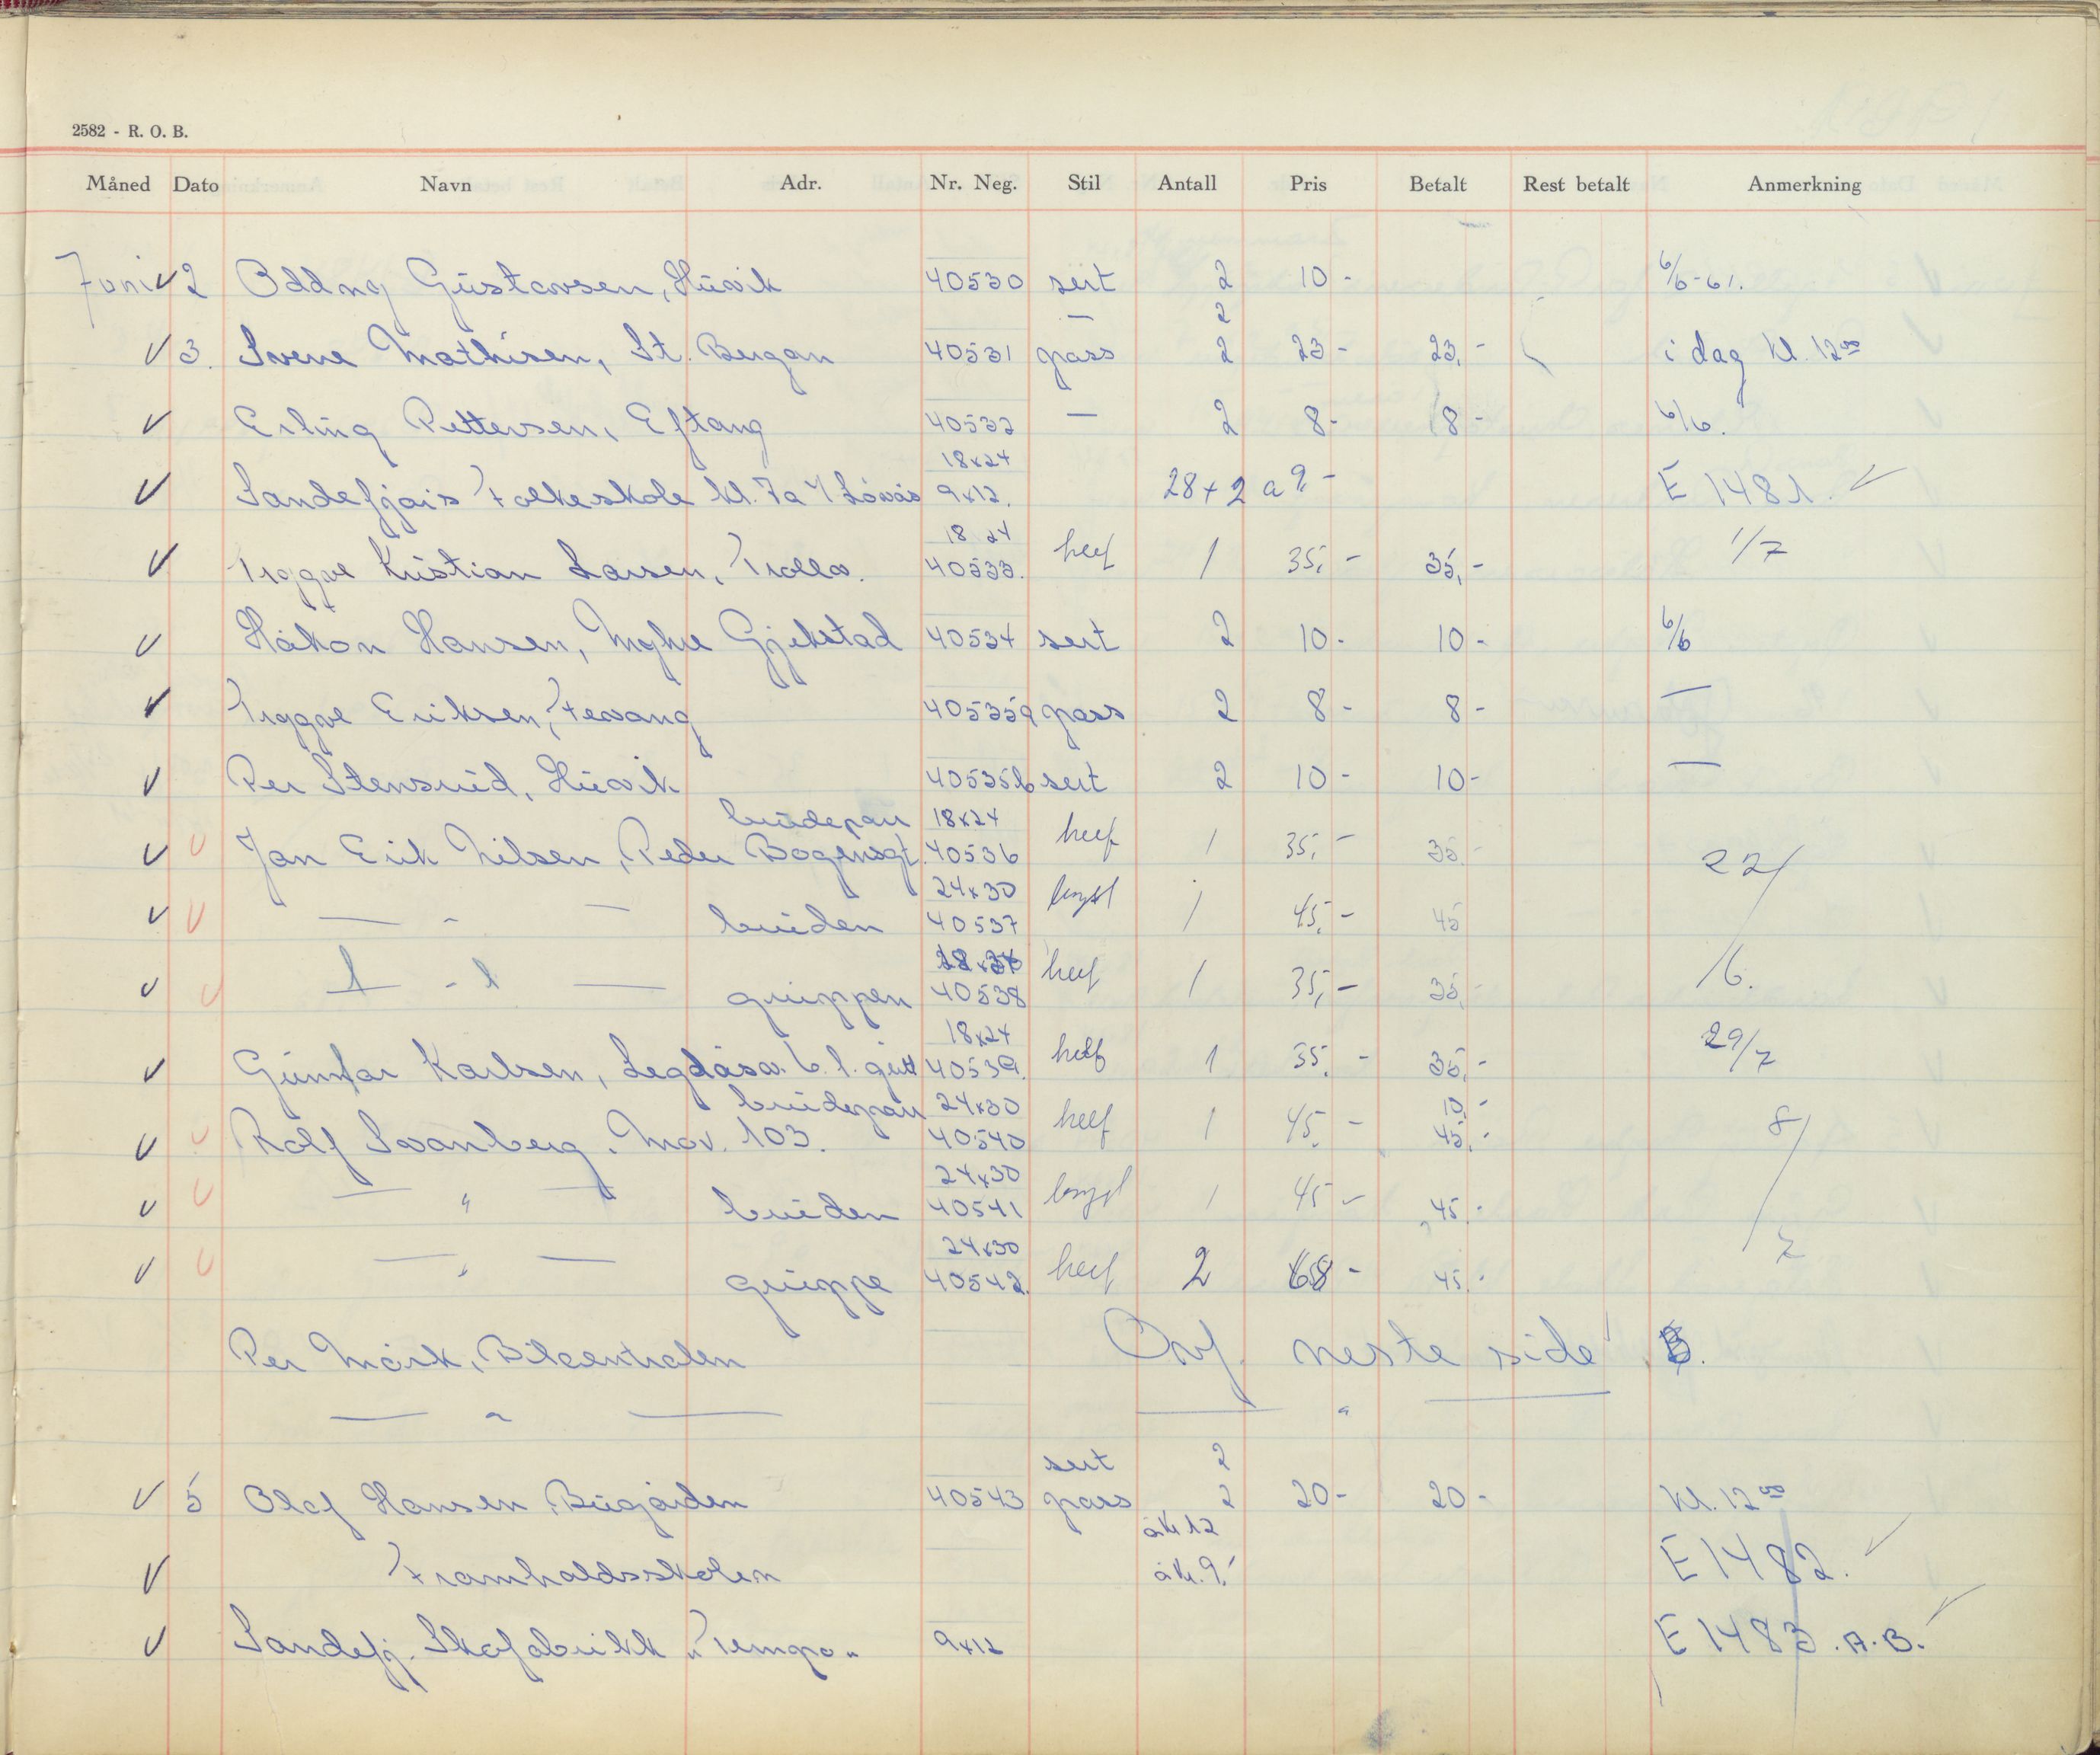 2582 - R. O. B.
Måned Dato Navn Adr. Nr. Neg. Stil Antall Pris Betalt Rest betalt Anmerkning
Juni 2 Oddny Gustavsen, Huvik 40530 sert 2 10 - 6/6-61.
— 2
3. Svene Mathisen, St. Bergan 40531 pass 2 23 - 23,- i dag kl. 12⁰⁰
Erling Pettersen, Eftang 40532 — 2 8 - 8 - 6/6.
18x24
Sandefjords Folkeskole kl. 7a 9x12. 28 + 2 a 9,- E 1481.
18 24
Tryggve Kristian Larsen, 40533. heef 1 35,- 35,- 1/7
Håkon Hansen, Myhre Gjekstad 40534 sert 2 10 - 10 - 6/6
Tryggve Eriksen, Fevang 40535a pass 2 8 - 8 - —
Per Stensrud, Huvik 40535b sert 2 10 - 10 - —
brudepar 18x24
Jan Erik Nilsen, Peder Bogensgt. 40536 heef 1 35,- 35,- 22/
24x30
— " — bruden 40537 1 45,- 45
— " — gruppen 40538 heef 1 35,- 35,- /6.
18x24
Gunnar Karlsen, b. l. gutt 40539. 1 35,- 35,- 29/7
brudepar 24x30 10,-
Rolf Svanberg, Mov. 103. 40540 heef 1 45,- 45,- 8/
24x30
— " — bruden 40541 1 45 - 45,-
24x30
— " — gruppe 40542. heef 2 68 - 45,- 7
Per Mörk, Bilcentralen Ovf. neste side
— " — — " —
sert 2
5 Olaf Hansen, Bugården 40543 pass 2 20 - 20 - kl. 12⁰⁰
à kr 12
Framhaldsskolen à kr. 9,- E 1482.
Sandefj. Skofabrikk „Tempo" 9x12 E 1483. A.B.